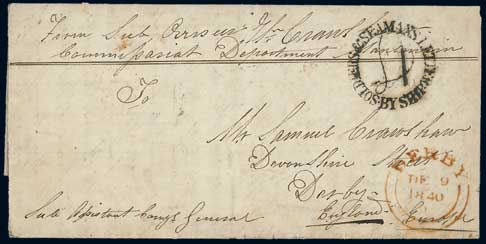 From Sub Overseer Wm Crawshaw
Commissariat Department
To
Mr Samuel Crawshaw
Devonshire Street
Derby
England Europe
Sub Assistant Comy General
SOLDIERS & SEAMANS
BY SHIP
DERBY
DE 9
1840